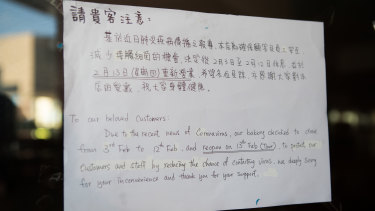 請貴客注意:
基於近日肺炎疫病傳播之報導,本店為確保顧客員工安全
減少接觸細菌的機會,決定從2月3日至2月12日休息,並於
2月13日(星期四)重新營業,希望各位見諒,亦感謝大家對本
店的愛戴,祝大家身體健康。
To our beloved Customers:
Due to the recent news of Coronavirus, our bakery decided to close
from 3rd Feb to 12th Feb, and reopen on 13th Feb (Thur) to protect our
customers and staff by reducing the chance of contacting virus, we deeply sorry
for your inconvenience and thank you for your support.